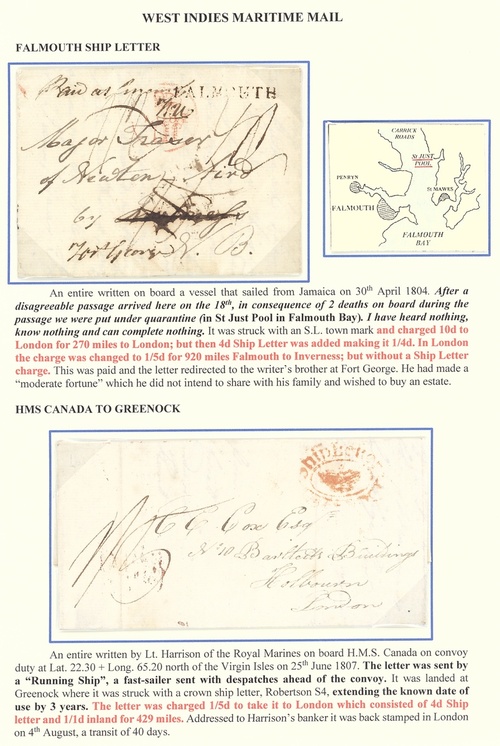 WEST INDIES MARITIME MAIL
FALMOUTH SHIP LETTER
FALMOUTH
Major Fraser
of Newton
by
Fort George N. B.
CARRICK
ROADS
St JUST
POOL
PENRYN
St MAWES
FALMOUTH
FALMOUTH
BAY
An entire written on board a vessel that sailed from Jamaica on 30th April 1804. After a
disagreeable passage arrived here on the 18th, in consequence of 2 deaths on board during the
passage we were put under quarantine (in St Just Pool in Falmouth Bay). I have heard nothing,
know nothing and can complete nothing. It was struck with an S.L. town mark and charged 10d to
London for 270 miles to London; but then 4d Ship Letter was added making it 1/4d. In London
the charge was changed to 1/5d for 920 miles Falmouth to Inverness; but without a Ship Letter
charge. This was paid and the letter redirected to the writer's brother at Fort George. He had made a
"moderate fortune" which he did not intend to share with his family and wished to buy an estate.
HMS CANADA TO GREENOCK
Cox Esqr
No 10 Bartletts Buildings
Holbourn
London
An entire written by Lt. Harrison of the Royal Marines on board H.M.S. Canada on convoy
duty at Lat. 22.30 + Long. 65.20 north of the Virgin Isles on 25th June 1807. The letter was sent by
a "Running Ship", a fast-sailer sent with despatches ahead of the convoy. It was landed at
Greenock where it was struck with a crown ship letter, Robertson S4, extending the known date of
use by 3 years. The letter was charged 1/5d to take it to London which consisted of 4d Ship
letter and 1/1d inland for 429 miles. Addressed to Harrison's banker it was back stamped in London
on 4th August, a transit of 40 days.